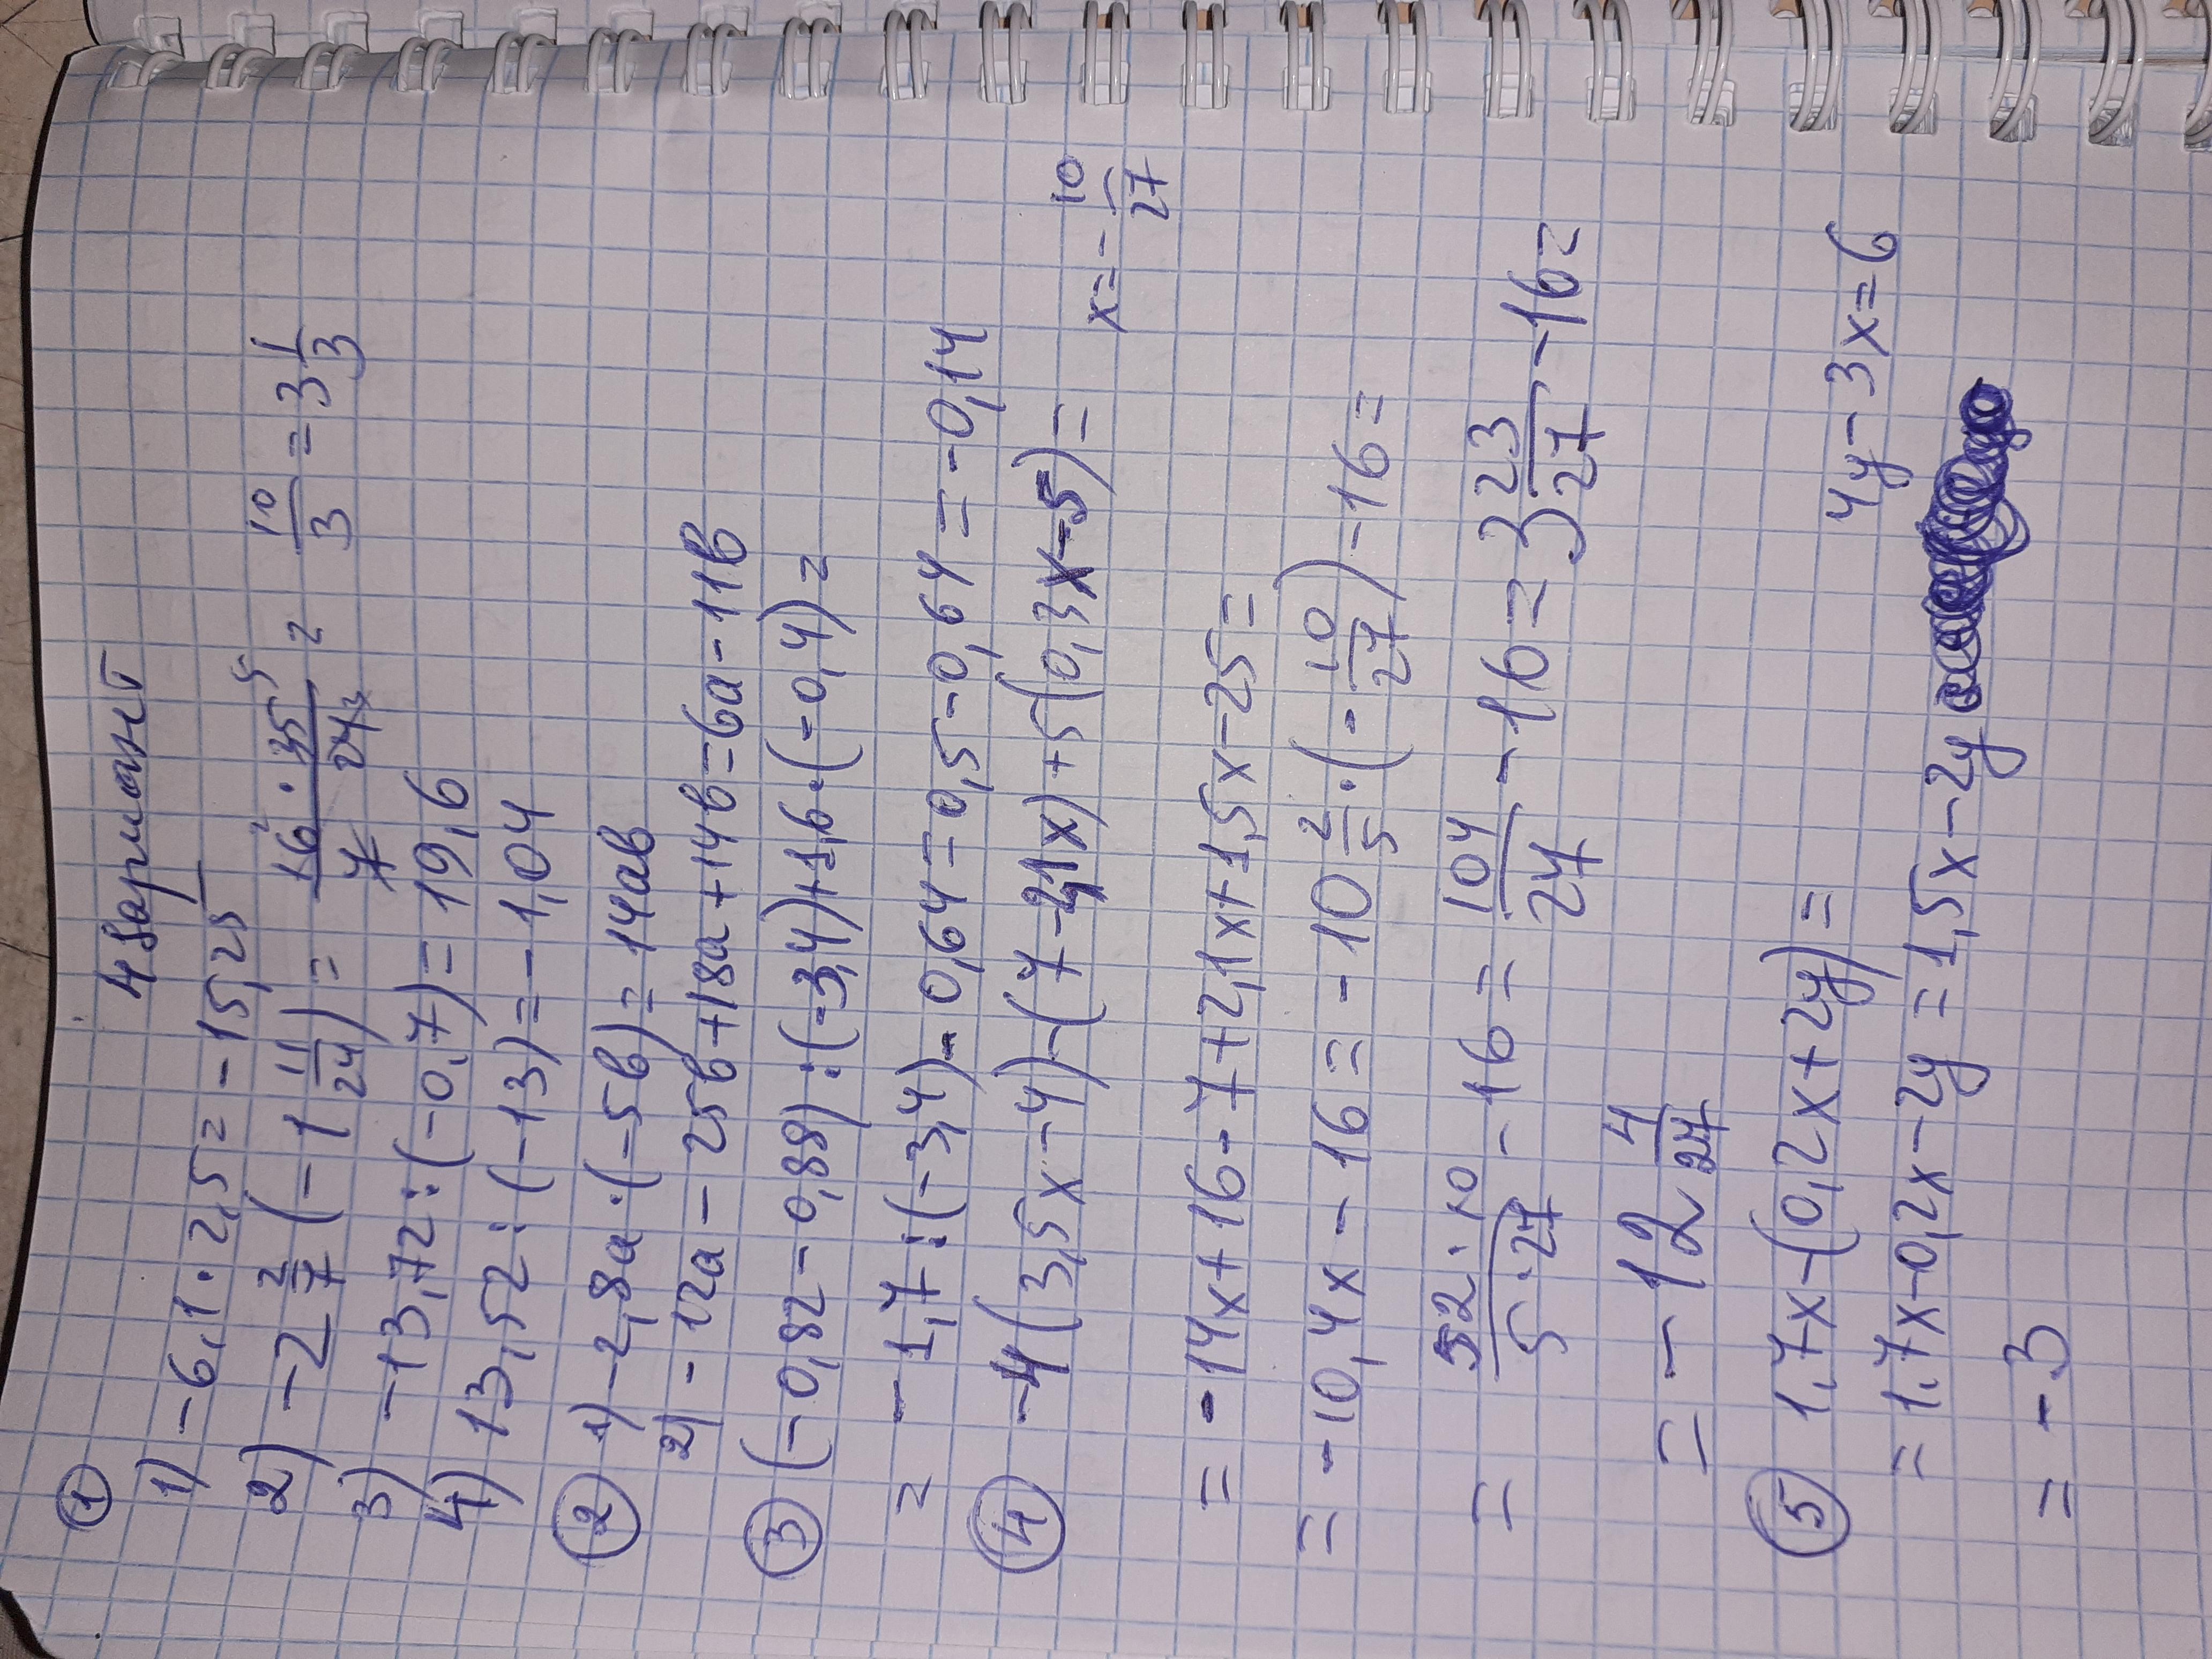 4 вариант
①
1) -6,1 · 2,5 = -15,25
2) -2 2/7 · (-1 11/24) = 16² · 35⁵ / 7 · 24₃ = 10/3 = 3 1/3
3) -13,72 : (-0,7) = 19,6
4) 13,52 : (-13) = -1,04
② 1) -2,8a · (-5b) = 14ab
2) -12a - 25b + 18a + 14b = 6a - 11b
③ (-0,82 - 0,88) : (-3,4) + 1,6 · (-0,4) =
= -1,7 : (-3,4) - 0,64 = 0,5 - 0,64 = -0,14
④ -4(3,5x - 4) - (7 - 2,1x) + 5(0,3x - 5) = x = -10/27
= -14x + 16 - 7 + 2,1x + 1,5x - 25 =
= -10,4x - 16 = -10 2/5 · (-10/27) - 16 =
= 52 · 10 / 5 · 27 - 16 = 104/27 - 16 = 3 23/27 - 16 =
= -12 4/27
⑤ 1,7x - (0,2x + 2y) = 4y - 3x = 6
= 1,7x - 0,2x - 2y = 1,5x - 2y
= -3